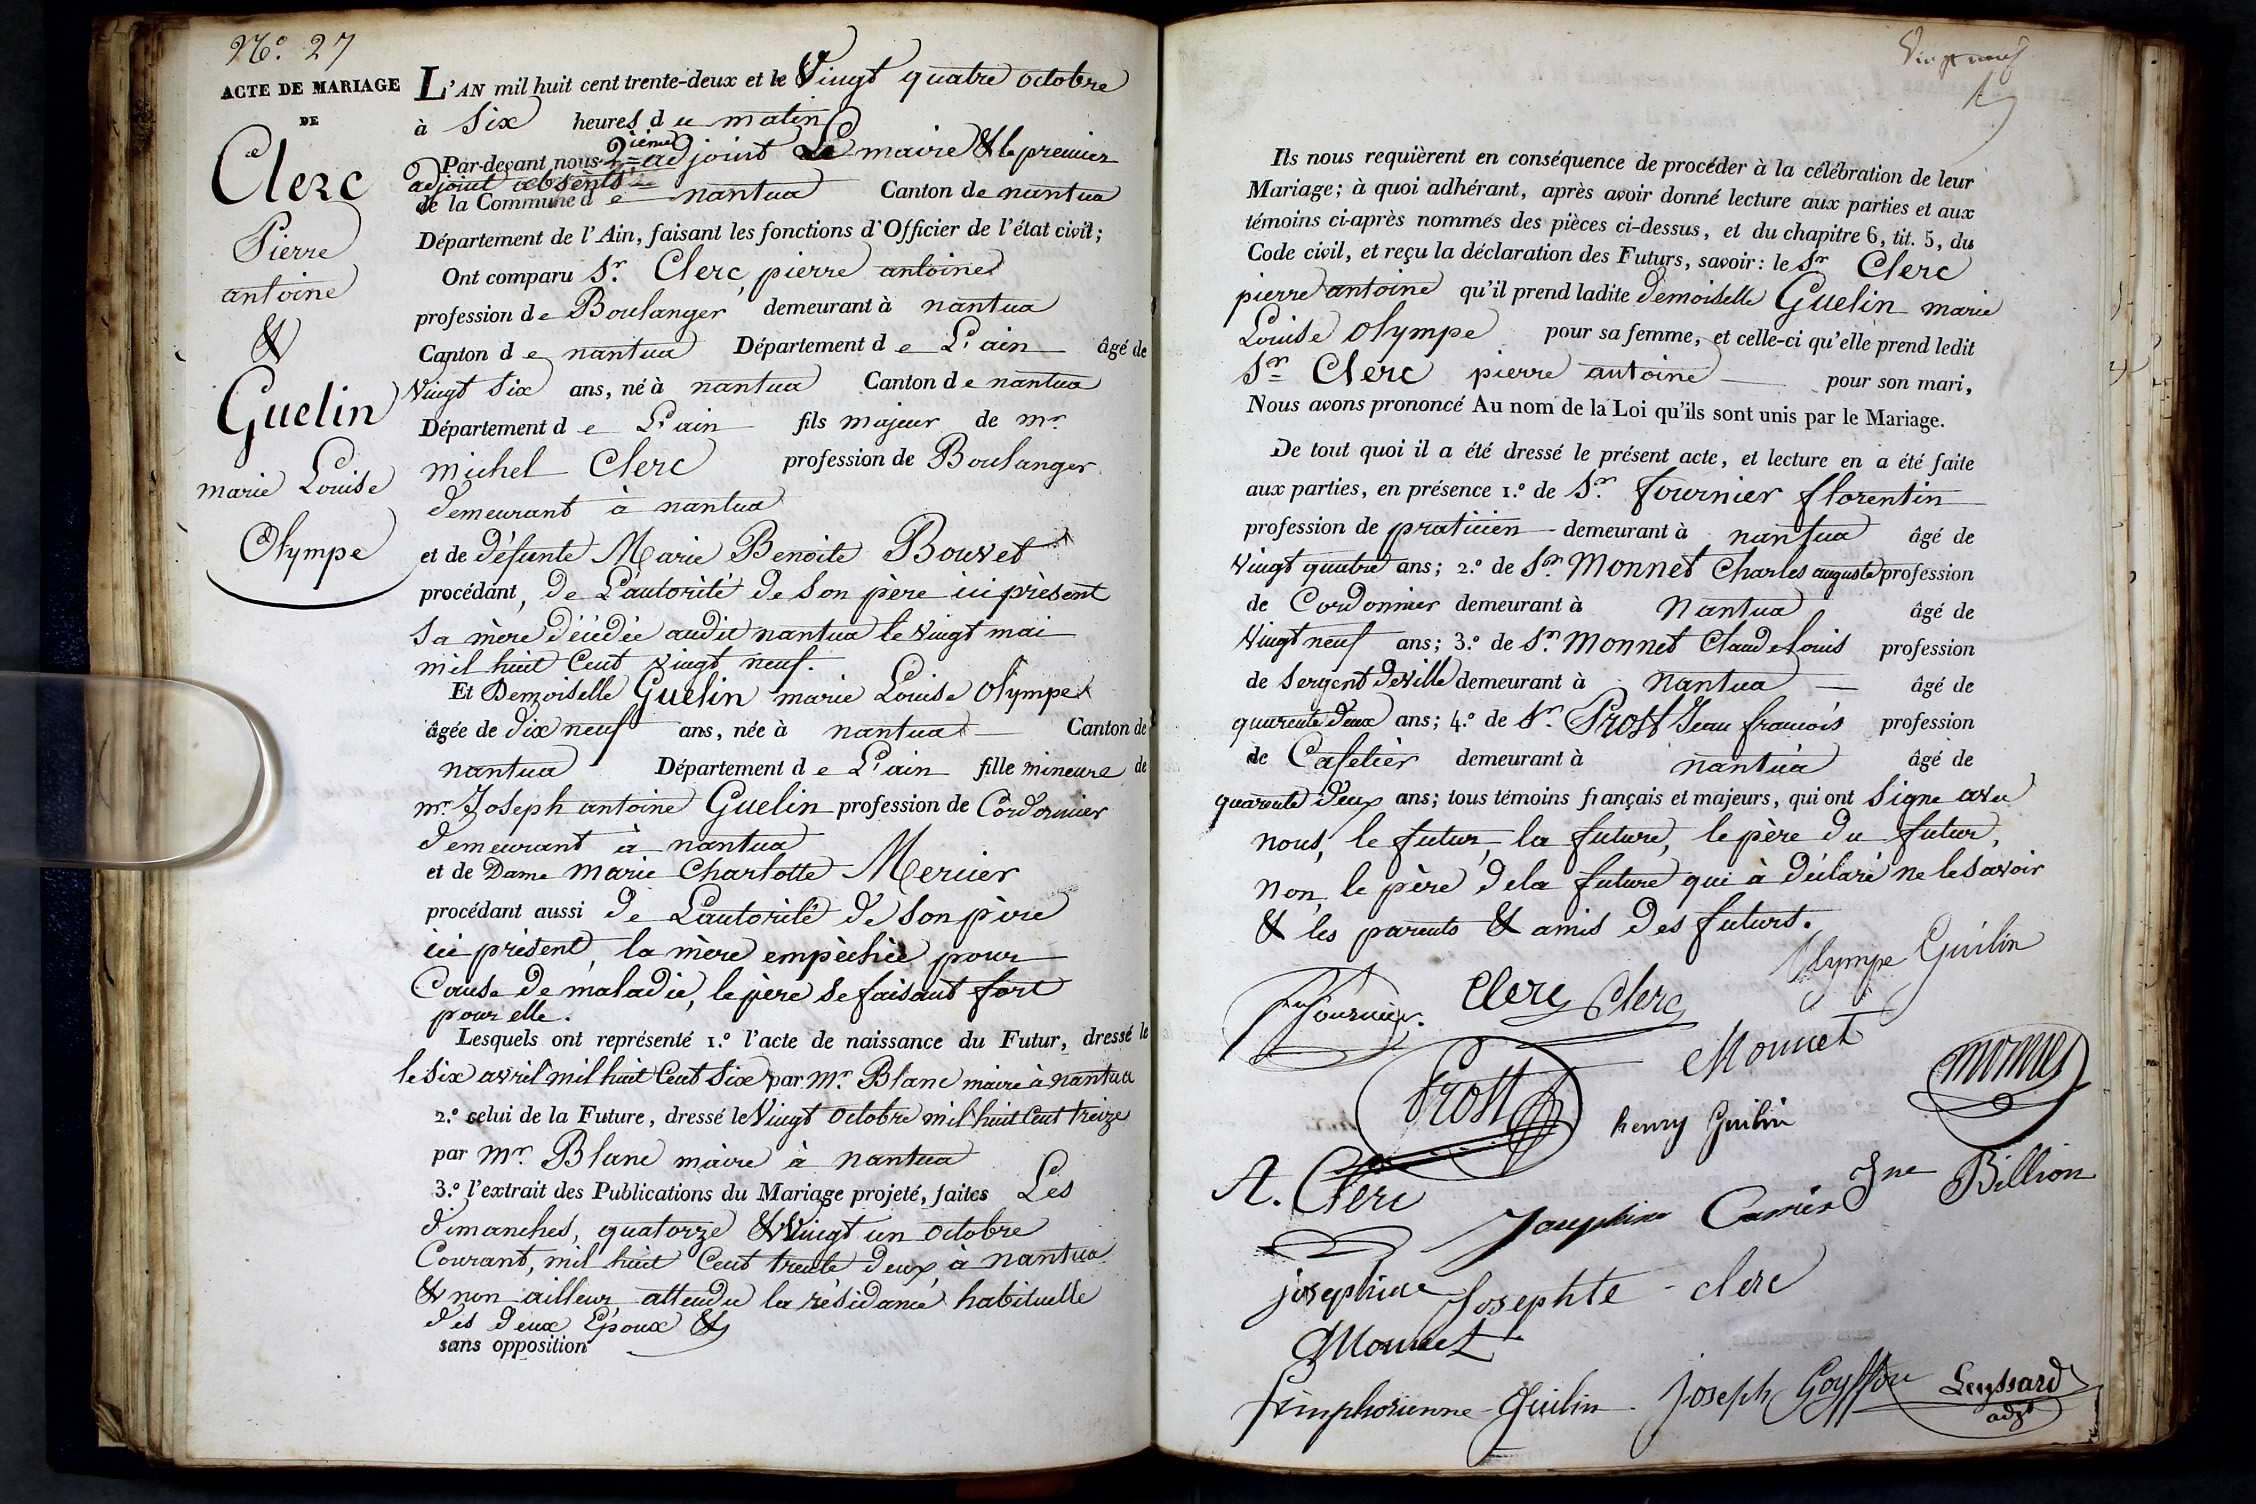 N.º 27
ACTE DE MARIAGE
DE
Clerc
Pierre
antoine
&
Guelin
marie Louise
Olympe
L'AN mil huit cent trente-deux et le Vingt quatre octobre
à Six heures du matin
Par-devant nous 2.ième adjoint Le maire & le premier
adjoint absents
de la Commune de nantua Canton de nantua
Département de l'Ain, faisant les fonctions d'Officier de l'état civil;
Ont comparu Sr. Clerc, pierre antoine
profession de Boulanger demeurant à nantua
Canton de nantua Département de L'ain âgé de
Vingt six ans, né à nantua Canton de nantua
Département de L'ain fils majeur de mr.
michel Clerc profession de Boulanger
demeurant à nantua
et de défunte Marie Benoite Bouvet
procédant, de L'autorité de Son père ici prèsent
Sa mère décédée audit nantua le vingt mai
mil huit Cent vingt neuf.
Et Demoiselle Guelin marie Louise Olympe
âgée de dix neuf ans, née à nantua Canton de
nantua Département de L'ain fille mineure de
mr. Joseph antoine Guelin profession de Cordonnier
demeurant à nantua
et de Dame marie Charlotte Mercier
procédant aussi de L'autorité de Son père
ici présent, la mère empèchée pour
Cause de maladie, le père Se faisant fort
pour elle.
Lesquels ont représenté 1.º l'acte de naissance du Futur, dressé le
le Six avril mil huit Cent Six par Mr. Blanc maire à nantua
2.º celui de la Future, dressé le Vingt Octobre mil huit Cent treize
par Mr. Blanc maire à nantua
3.º l'extrait des Publications du Mariage projeté, faites Les
dimanches, quatorze & Vingt un octobre
Courant, mil huit Cent trente deux à nantua
& non ailleur, attendu la résidance habituelle
des deux Epoux &
sans opposition
Vingt neuf
Ils nous requièrent en conséquence de procéder à la célébration de leur
Mariage; à quoi adhérant, après avoir donné lecture aux parties et aux
témoins ci-après nommés des pièces ci-dessus, et du chapitre 6, tit. 5, du
Code civil, et reçu la déclaration des Futurs, savoir: le Sr. Clerc
pierre antoine qu'il prend ladite demoiselle Guelin marie
Louise Olympe pour sa femme, et celle-ci qu'elle prend ledit
Sr. Clerc pierre antoine pour son mari,
Nous avons prononcé Au nom de la Loi qu'ils sont unis par le Mariage.
De tout quoi il a été dressé le présent acte, et lecture en a été faite
aux parties, en présence 1.º de Sr. fournier florentin
profession de praticien demeurant à nantua âgé de
Vingt quatre ans; 2.º de Sr. Monnet Charles auguste profession
de Cordonnier demeurant à Nantua âgé de
Vingt neuf ans; 3.º de Sr. Monnet Claude Louis profession
de Sergent deville demeurant à Nantua âgé de
quarente deux ans; 4.º de Sr. Prost Jean francois profession
de Cafetier demeurant à nantua âgé de
quarente deux ans; tous témoins français et majeurs, qui ont Signe avec
nous, le futur, la future, le père du futur,
non, le père dela future qui à déclaré ne le savoir
& les parents & amis des futurs.
Fournier. Clerc Clerc Olympe Guilin
Prost Monnet monnet
henry Guilin
A. Clerc Josephine Carrier Jne Billion
josephine Josephte - clerc
Monnet
simphorienne Guilin Joseph Goyffon Leyssard
adjt